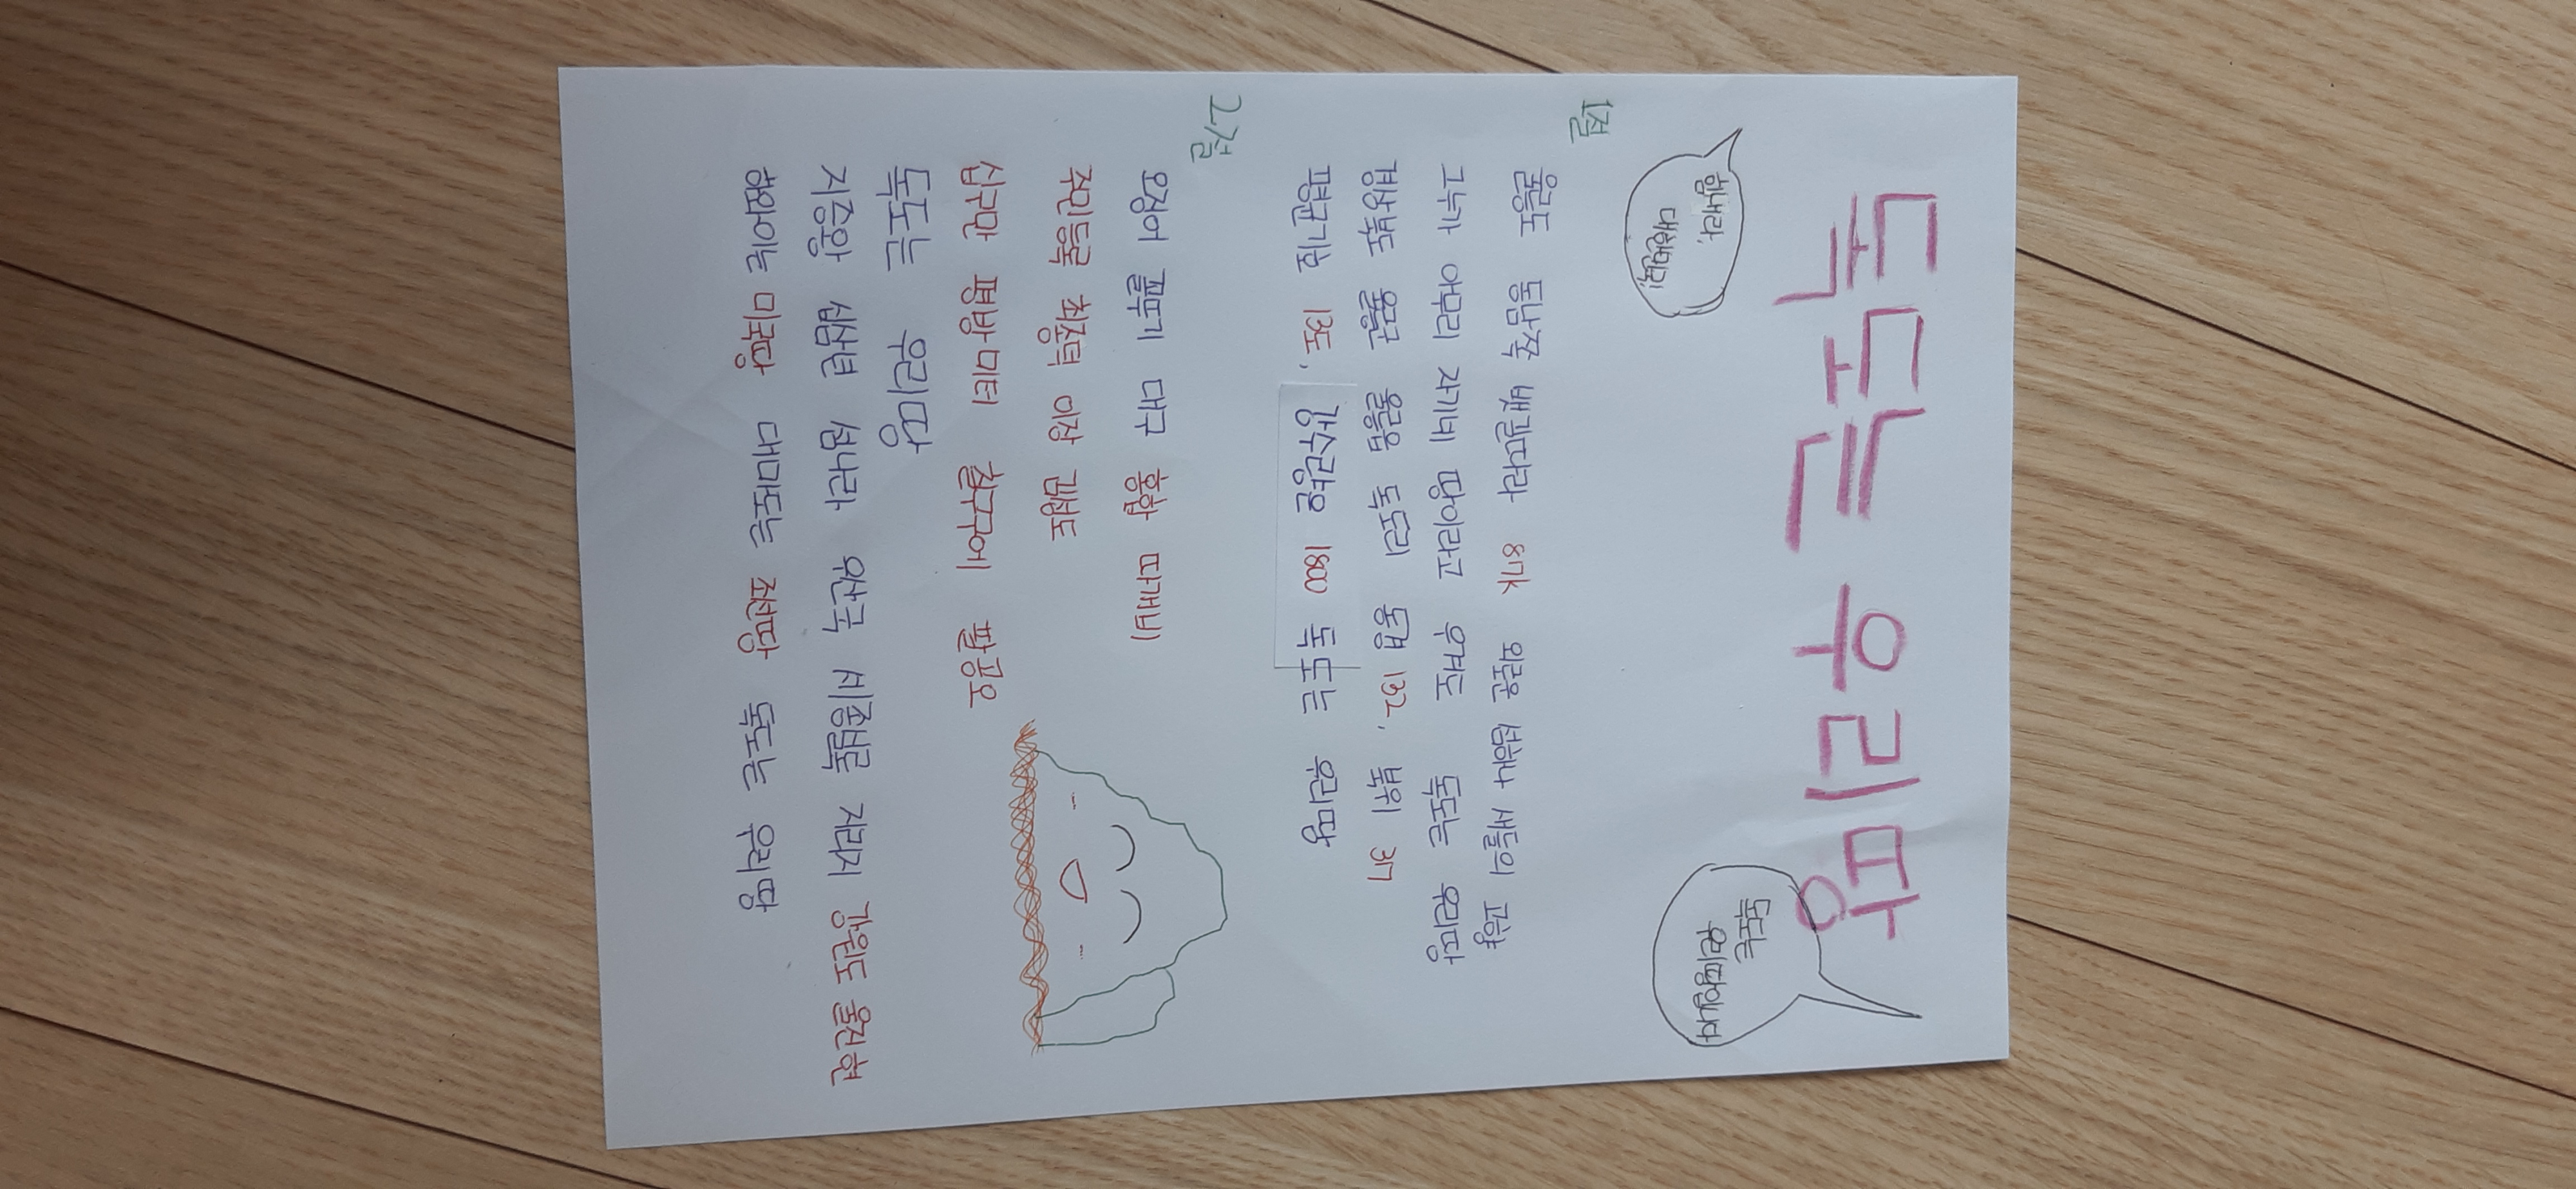 독도는 우리땅
힘내라,
대한민국!
독도는
우리땅입니다
1절
울릉도 동남쪽 뱃길따라 87k 외로운 섬하나 새들의 고향
그누가 아무리 자기네 땅이라고 우겨도 독도는 우리땅
경상북도 울릉군 울릉읍 독도리 동경 132, 북위 37
평균기온 13도, 강수량은 1800 독도는 우리땅
2절
오징어 꼴뚜기 대구 홍합 따개비
주민등록 최종덕 이장 김성도
십구만 평방미터 칠구구에 팔공오
독도는 우리땅
지증왕 십삼년 섬나라 우산국 세종실록 지리지 강원도 울진현
하와이는 미국땅 대마도는 조선땅 독도는 우리땅